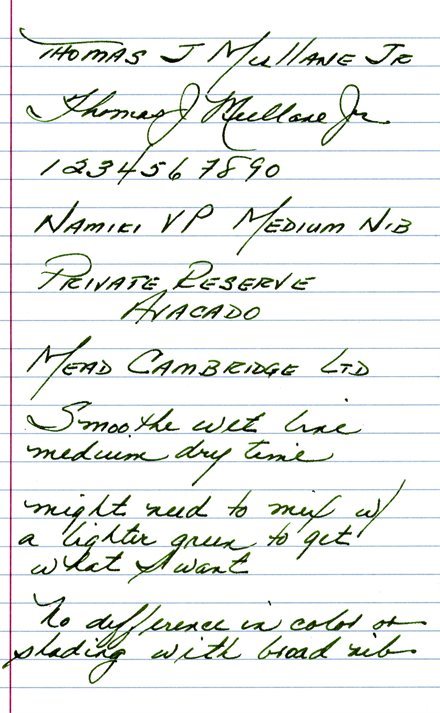 THOMAS J MULLANE JR
Thomas J Mullane Jr
1234567890
NAMIKI VP MEDIUM NIB
PRIVATE RESERVE
AVACADO
MEAD CAMBRIDGE LTD
Smoothe wet line
medium dry time
might need to mix w/
a lighter green to get
what I want
No difference in color or
shading with broad nib